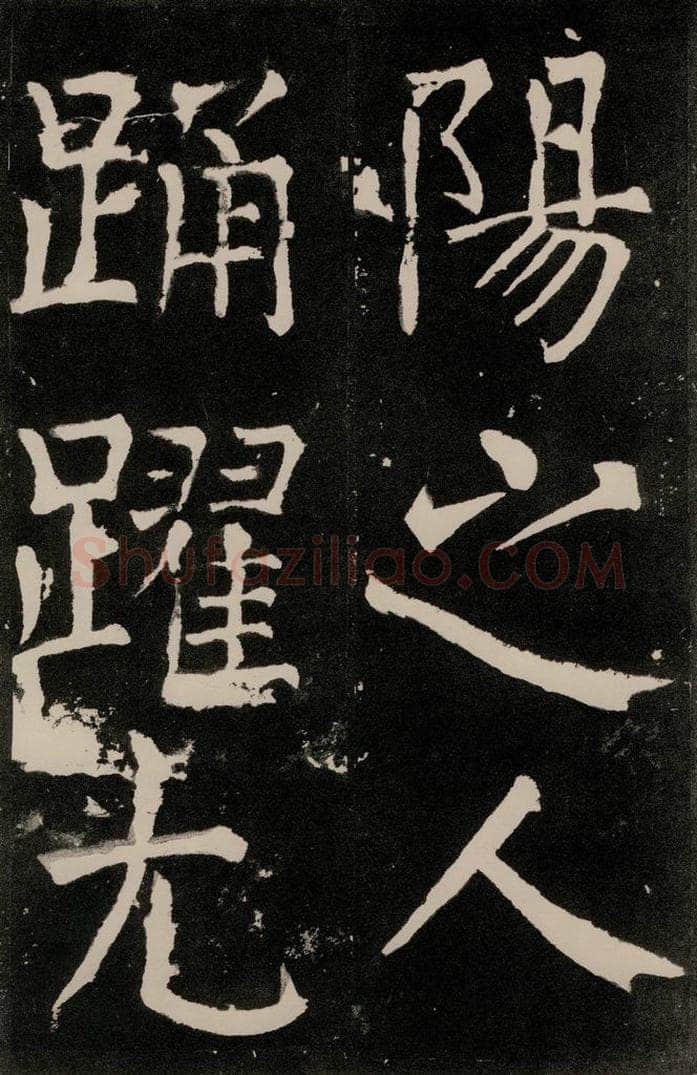 陽之人
踊躍先
Shufaziliao.COM